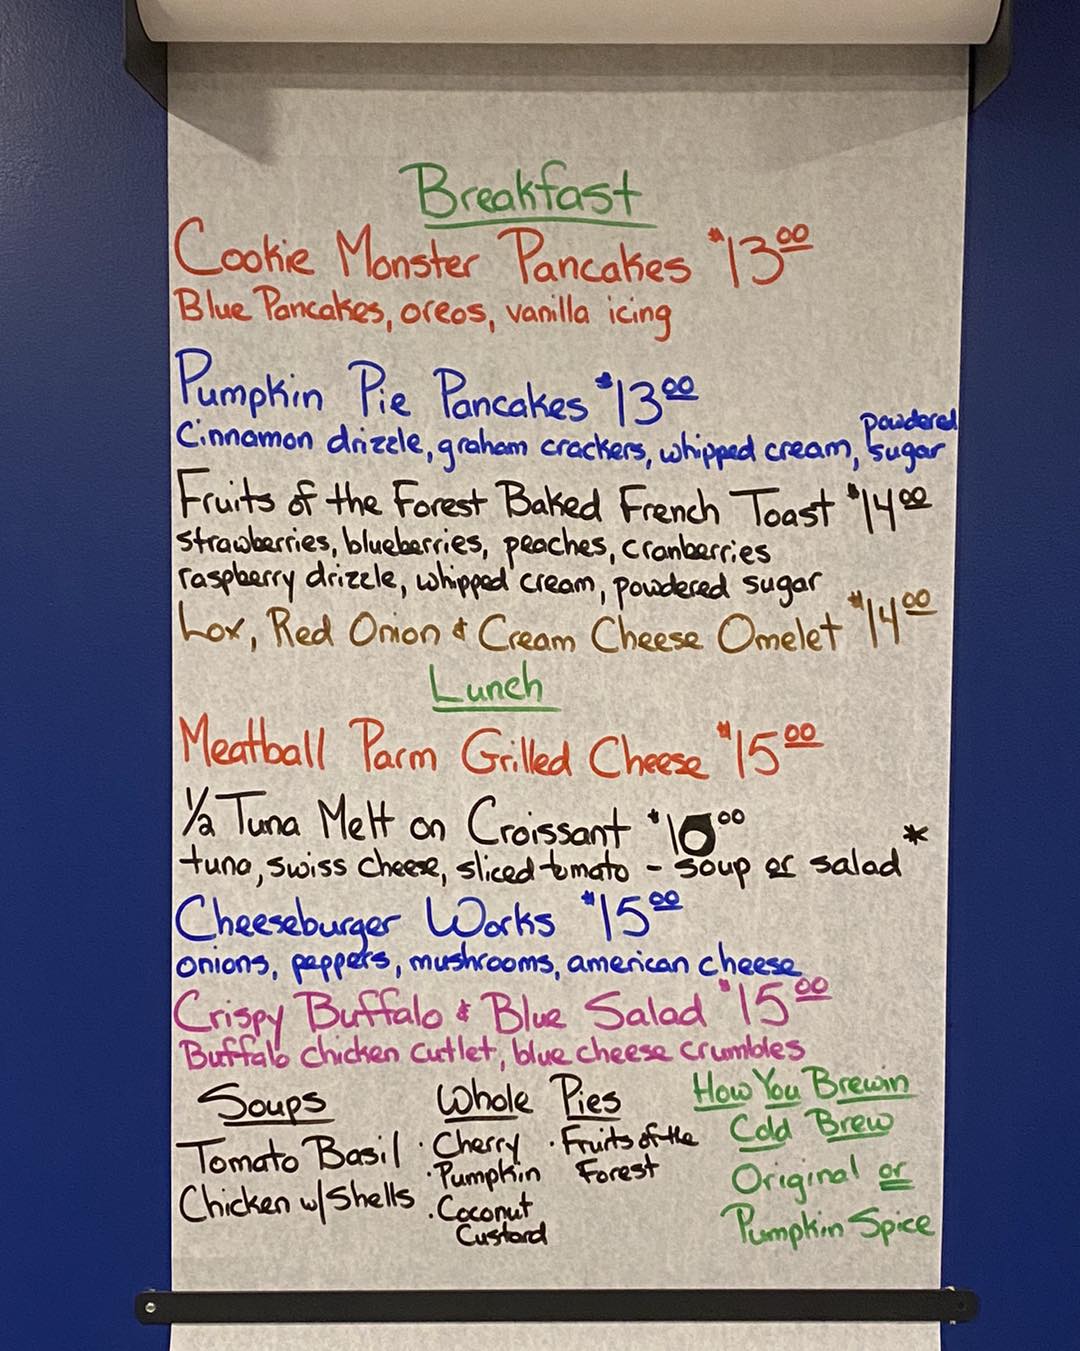 Breakfast
Cookie Monster Pancakes $13.00
Blue Pancakes, oreos, vanilla icing
Pumpkin Pie Pancakes $13.00
Cinnamon drizzle, graham crackers, whipped cream, powdered sugar
Fruits of the Forest Baked French Toast $14.00
strawberries, blueberries, peaches, cranberries
raspberry drizzle, whipped cream, powdered sugar
Lox, Red Onion & Cream Cheese Omelet $14.00
Lunch
Meatball Parm Grilled Cheese $15.00
1/2 Tuna Melt on Croissant $10.00
tuna, swiss cheese, sliced tomato - soup or salad *
Cheeseburger Works $15.00
onions, peppers, mushrooms, american cheese
Crispy Buffalo & Blue Salad $15.00
Buffalo chicken cutlet, blue cheese crumbles
Soups
Tomato Basil
Chicken w/Shells
Whole Pies
· Cherry
· Pumpkin
· Coconut
Custard
· Fruits of the
Forest
How You Brewin
Cold Brew
Original or
Pumpkin Spice